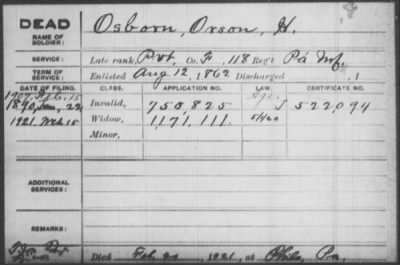 DEAD
NAME OF SOLDIER: Osborn, Orson, H.
SERVICE: Late rank, Pvt. Co. F, 118 Reg't Pa Inf.
TERM OF SERVICE: Enlisted Aug 12, 1862 Discharged , 1
DATE OF FILING. CLASS. APPLICATION NO. LAW. CERTIFICATE NO.
1890 22 Invalid, 750,825 522,094
1921 15 Widow, 1171,111
Minor,
ADDITIONAL SERVICES:
REMARKS:
Died Feb , 1921, at Phila, Pa.